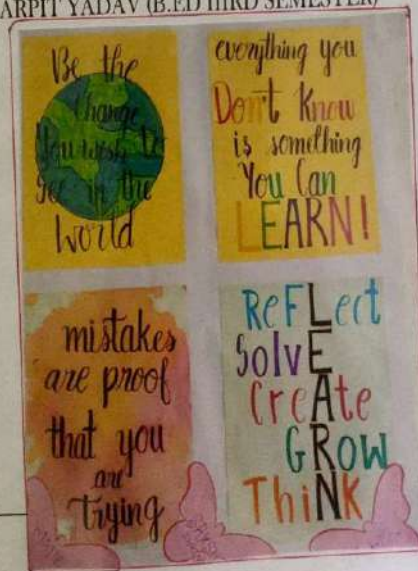 ARPIT YADAV (B.ED IIIRD SEMESTER)
Be the
Change
You wish to
See in the
World
everything you
Don't Know
is something
You Can
LEARN!
mistakes
are proof
that you
are
Trying
ReFLect
SolvE
CreAte
GROW
ThiNK